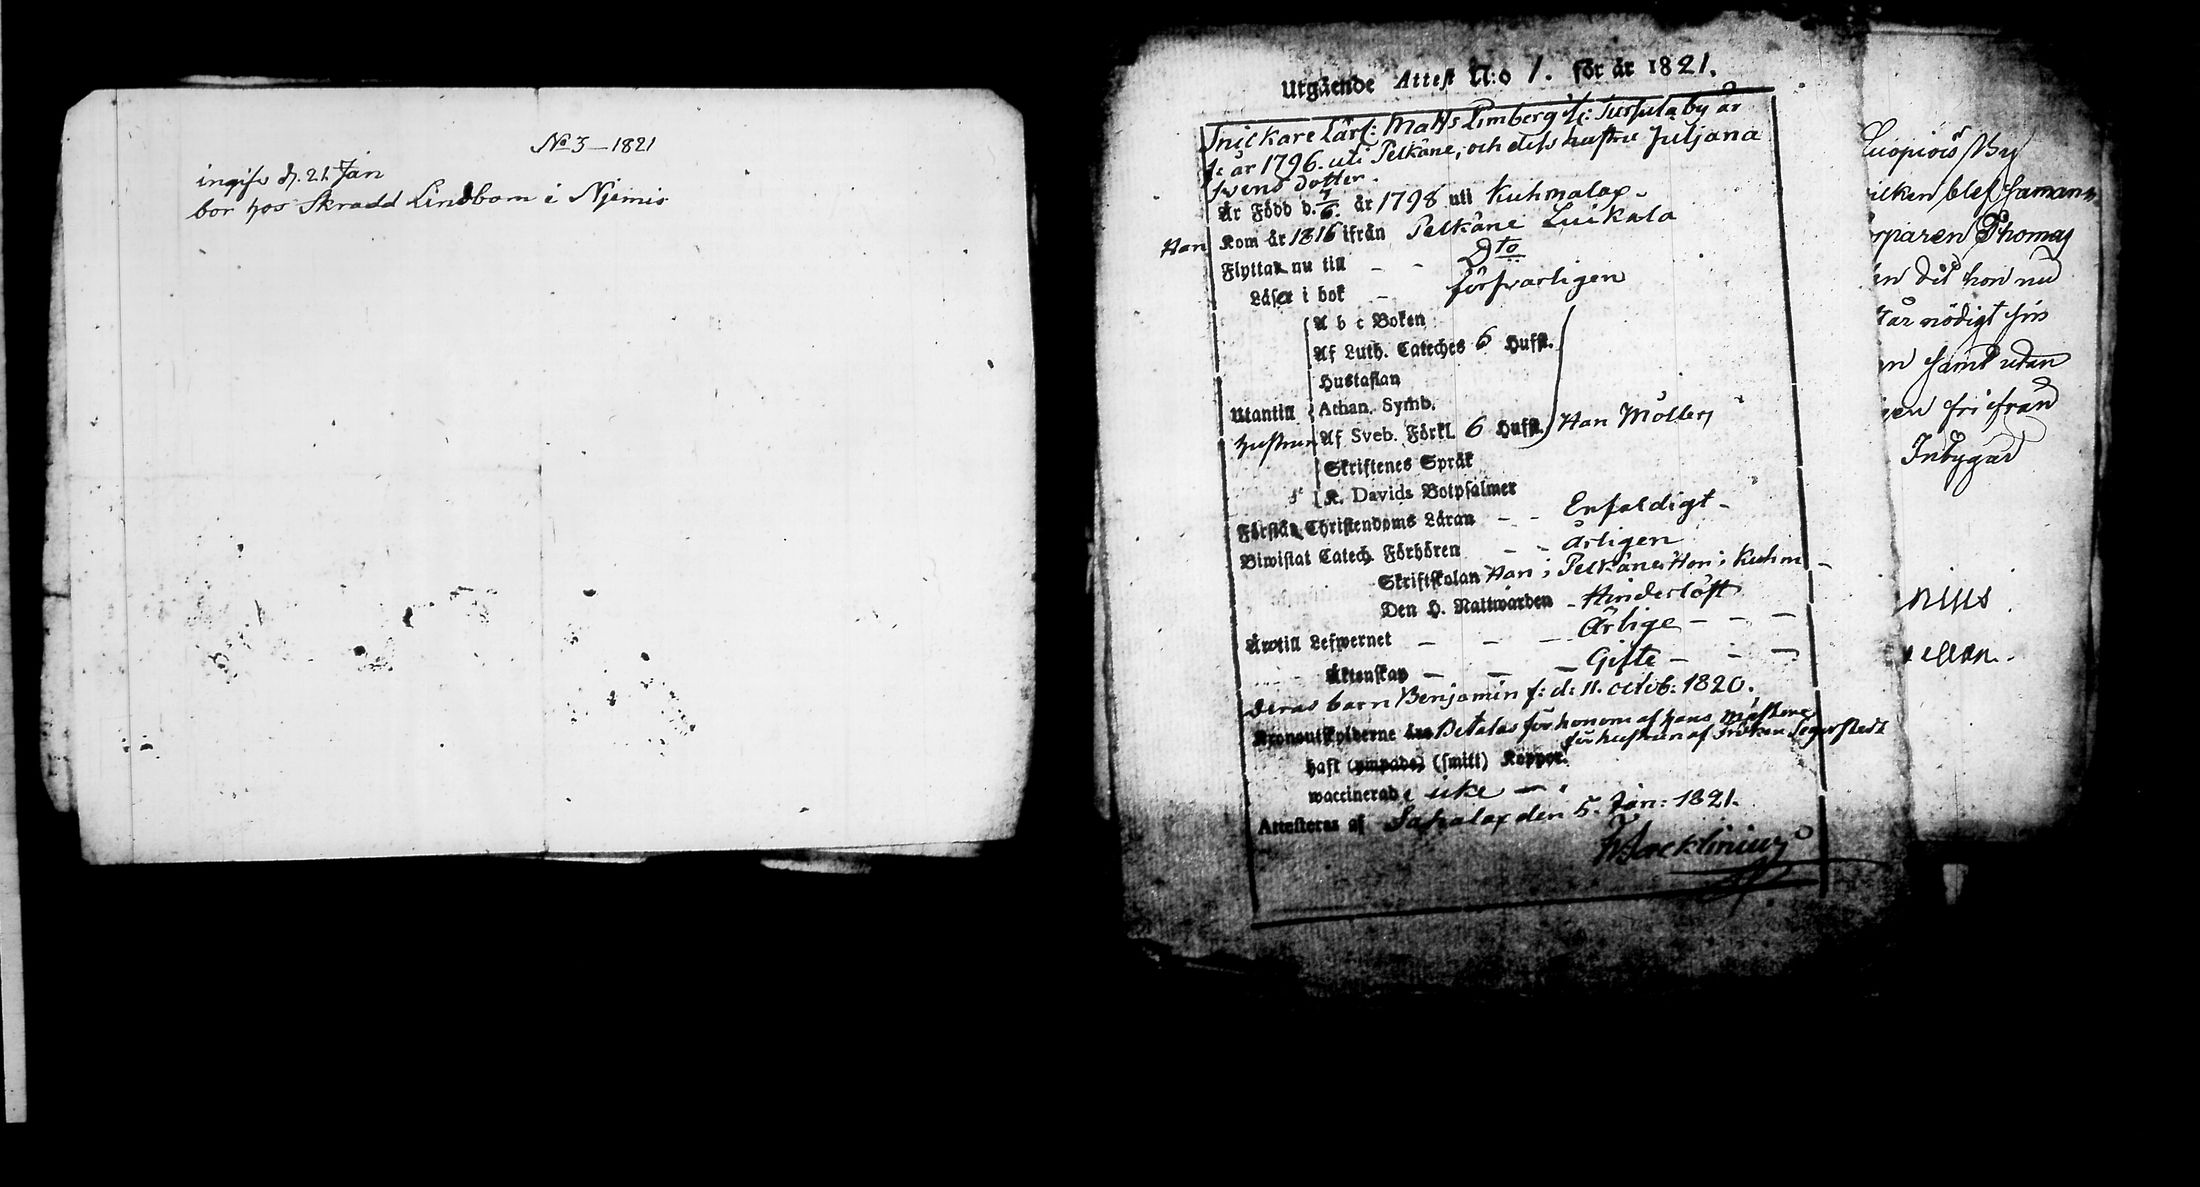 No 3 – 1821
ingifv d. 21 Jan
bor hos Skradd Lindbom i Njemis
Utgående Attest N:o 1. för år 1821.
Snickare Lärl: Matts Limberg ifr: Turpula by är
f: år 1796. uti Pelkäne, och dess hustru Juljana
Svens dotter.
Är Född d. 7/6. år 1798 uti Kuhmalax.
Han Kom år 1816 ifrån Pelkäne Luikala
Flyttar nu till – – Dto
Läser i bok – försvarligen
A b c Boken
Af Luth. Cateches 6 Hufst.
Hustaflan
Utantill Athan. Symb.
hustrun Af Sveb. Förkl. 6 Hufst. Han Möllers
Skriftenes Språk
K. Davids Botpsalmer
Förstår Christendoms Läran – – Enfaldigt –
Biwistat Catech. Förhören – – Årligen
Skriftskolan Han i Pelkäne Hon i Kuhm –
Den H. Nattwarden – Hinderlöst
Är till Lefwernet – – – Ärlige – – –
Äktenskap – – – Gifte – – –
deras barn Benjamin f: d: 11. octob: 1820.
Kronoutskylderne äro Betalas för honom af hans Mästare
för hustrun af Fröken Segerstedt
haft (ympade) (smitt) Koppor.
waccinerad e icke –
Attesteras af Sahalax den 5. Jan: 1821.
Luopiois By
ilken blef samman
rparen Thomas
en dit hon nu
tar nödigt för
n samt utan
gen fri ifrån
Inbygad